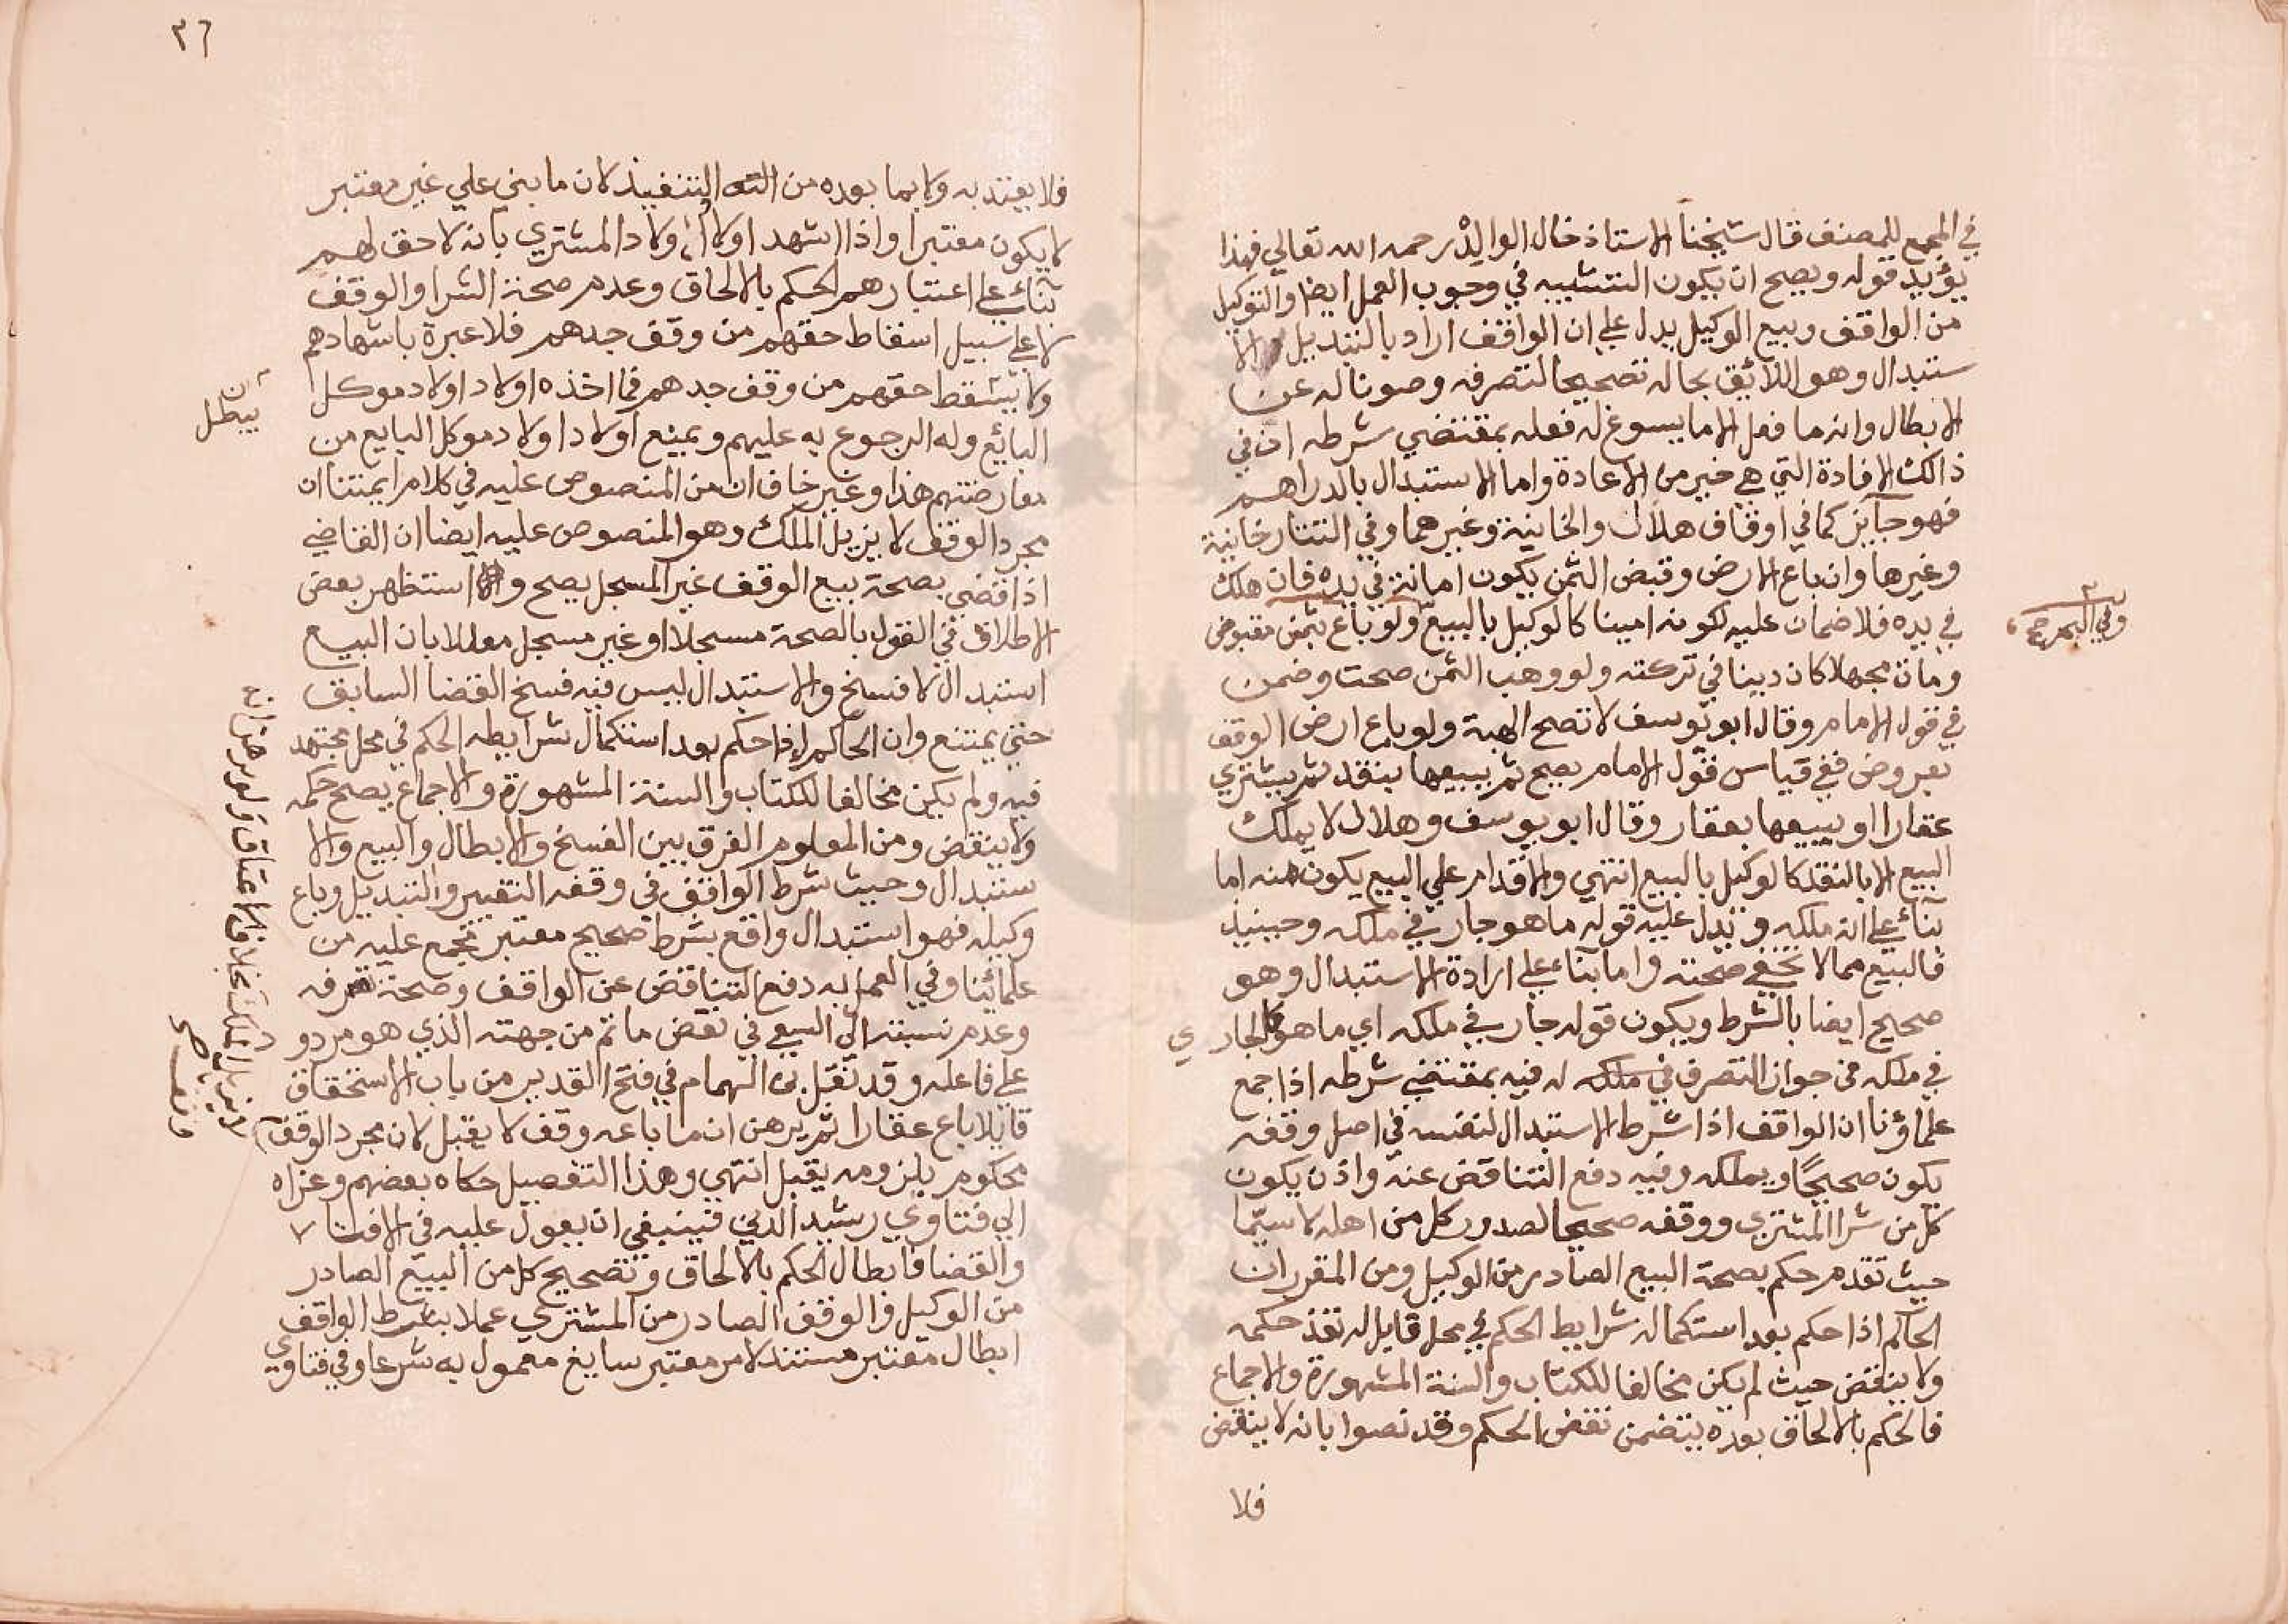 في المجمع للمصنف قال شيخنا الاستاذ خال الوالد رحمه الله تعالي فهذا
يؤيد قوله ويصح ان يكون التشبيه في وجوب العمل ايضا والتوكيل
من الواقف وبيع الوكيل يدل علي ان الواقف اراد بالتبديل الا
ستبدال وهو اللائق بحاله تصحيحا لتصرفه وصونا له عن
الابطال وانه ما فعل الا ما يسوغ له فعله بمقتضي شرطه اذ في
ذالك الافادة التي هي خير من الاعادة واما الاستبدال بالدراهم
فهو جآيز كما في اوقاف هلال والخانية وغيرهما وفي التتارخانية
وغيرها وان باع الارض وقبض الثمن يكون امانة في يده فان هلك
في يده فلا ضمان عليه لكونه امينا كالوكيل بالبيع ولو باع بثمن مقبوض
وفي البحر
ومات مجهلا كان دينا في تركته ولو وهب الثمن صحت وضمن
في قول الامام وقال ابو يوسف لا تصح الهبة ولو باع ارض الوقف
بعروض ففي قياس قول الامام يصح ثم يبيعها بنقد ثم يشتري
عقارا او يبيعها بعقار وقال ابو يوسف وهلال لا يملك
البيع الا بالنقد كالوكيل بالبيع انتهي والاقدام علي البيع يكون منه اما
بنآء علي انه ملكه ويدل عليه قوله ما هو جار في ملكه وحينيذ
فالبيع مما لا تخفي صحته واما بنآء علي ارادة الاستبدال وهو
صحيح ايضا بالشرط ويكون قوله جار في ملكه اي ما هو كالجاري
في ملكه في جواز التصرف في ملكه له فيه بمقتضي شرطه اذا جمع
علماؤنا ان الواقف اذا شرط الاستبدال لنفسه في اصل وقفه
يكون صحيحا ويملكه وفيه دفع التناقض عنه واذن يكون
كل من شرا المشتري ووقفه صحيحا لصدور كل من اهله لا سيما
حيث تقدم حكم بصحة البيع الصادر من الوكيل ومن المقرر ان
الحاكم اذا حكم بعد استكماله شرايط الحكم في محل قابل له نفذ حكمه
ولا ينقض حيث لم يكن مخالفا للكتاب والسنة المشهورة والاجماع
فالحكم بالالحاق بعده يتضمن نقض الحكم وقد نصوا بانه لا ينقض
فلا
٣٦
فلا يعتد به ولا بما بعده من التنفيذ لان ما بني علي غير معتبر
لا يكون معتبرا واذا اشهد اولاد اولاد المشتري بانه لا حق لهم
بنآء علي اعتبارهم الحكم بالالحاق وعدم صحة الشرا والوقف
لا علي سبيل اسقاط حقهم من وقف جدهم فلا عبرة باشهادهم
ولا يسقط حقهم من وقف جدهم فما اخذه اولاد اولاد موكل
البائع وله الرجوع به عليهم ويمنع اولاد اولاد موكل البايع من
معارضتهم هذا وغير خاف ان من المنصوص عليه في كلام ايمتنا ان
مجرد الوقف لا يزيل الملك وهو المنصوص عليه ايضا ان القاضي
اذا قضي بصحة بيع الوقف غير المسجل يصح واستظهر بعض
الاطلاق في القول بالصحة مسجلا او غير مسجل معللا بان البيع
ان يبطل
استبدال لا فسخ والاستبدال ليس فيه فسخ القضا السابق
حتي يمتنع وان الحاكم اذا حكم بعد استكمال شرايطه الحكم في محل مجتهد
فيه ولم يكن مخالفا للكتاب والسنة المشهورة والاجماع يصح حكمه
ولا ينقض ومن المعلوم الفرق بين الفسخ والابطال والبيع والا
ستبدال وحيث شرط الواقف في وقفه التغيير والتبديل وباع
وكيله فهو استبدال واقع بشرط صحيح معتبر مجمع عليه من
علمائنا وفي العمل به دفع التناقض عن الواقف وصحة تصرفه
وعدم نسبته الي السعي في نقض ما تم من جهته الذي هو مردود
علي فاعله وقد نقل بن الهمام في فتح القدير من باب الاستحقاق
قايلا باع عقارا ثم برهن ان ما باعه وقف لا يقبل لان مجرد الوقف
لا يزيل الملك بخلاف الاعتاق ولو برهن انه
وقف صح
محكوم بلزومه يقبل انتهي وهذا التفصيل حكاه بعضهم وعزاه
الي فتاوي رشيد الدين فينبغي ان يعول عليه في الافتا
والقضا فابطال الحكم بالالحاق وتصحيح كل من البيع الصادر
من الوكيل والوقف الصادر من المشتري عملا بشرط الواقف
ابطال معتبر مستند لامر معتبر سايغ معمول به شرعا وفي فتاوي